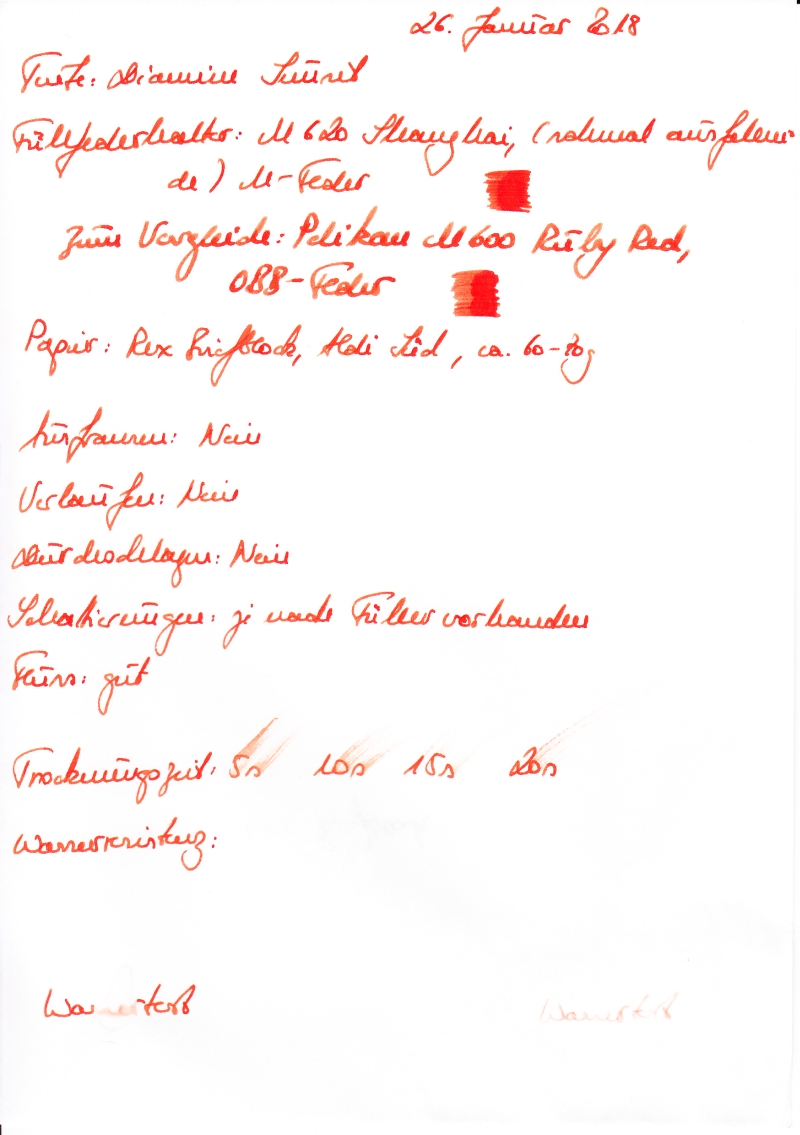 26. Januar 2018
Tinte: Diamine Sunset
Füllfederhalter: M 620 Shanghai, (nochmal ausfallen-
de) M-Feder
zum Vergleich: Pelikan M600 Ruby Red,
OBB-Feder
Papier: Rex Briefblock, Aldi Süd, ca. 60-80g
Ausfransen: Nein
Verlaufen: Nein
Durchschlagen: Nein
Schattierungen: je nach Füller vorhanden
Fluss: gut
Trocknungszeit: 5s 10s 15s 20s
Wasserresistenz:
Wassertest Wassertest